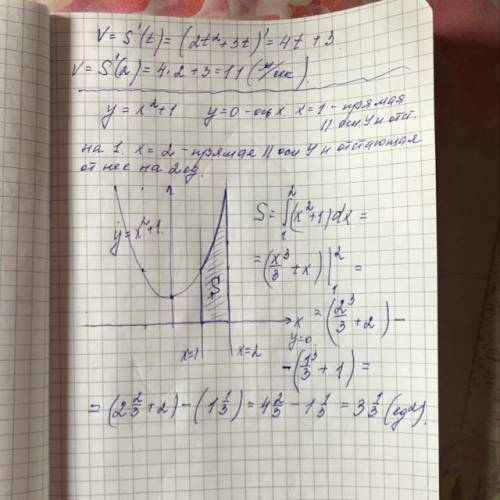 V = S'(t) = (2t²+3t)' = 4t + 3.
V = S'(2) = 4·2+3 = 11 (м/сек).
y = x²+1 y=0 - ось x. x=1 - прямая
|| оси y и отст.
на 1. x = 2 - прямая || оси y и отстающая
от нее на 2 ед.
y = x²+1.
S = ∫₁² (x²+1)dx =
= (x³/3 + x) |₁² =
S
x
y=0
x=1
x=2
= (2³/3 + 2) -
- (1³/3 + 1) =
= (2 2/3 + 2) - (1 1/3) = 4 2/3 - 1 1/3 = 3 1/3 (ед²).